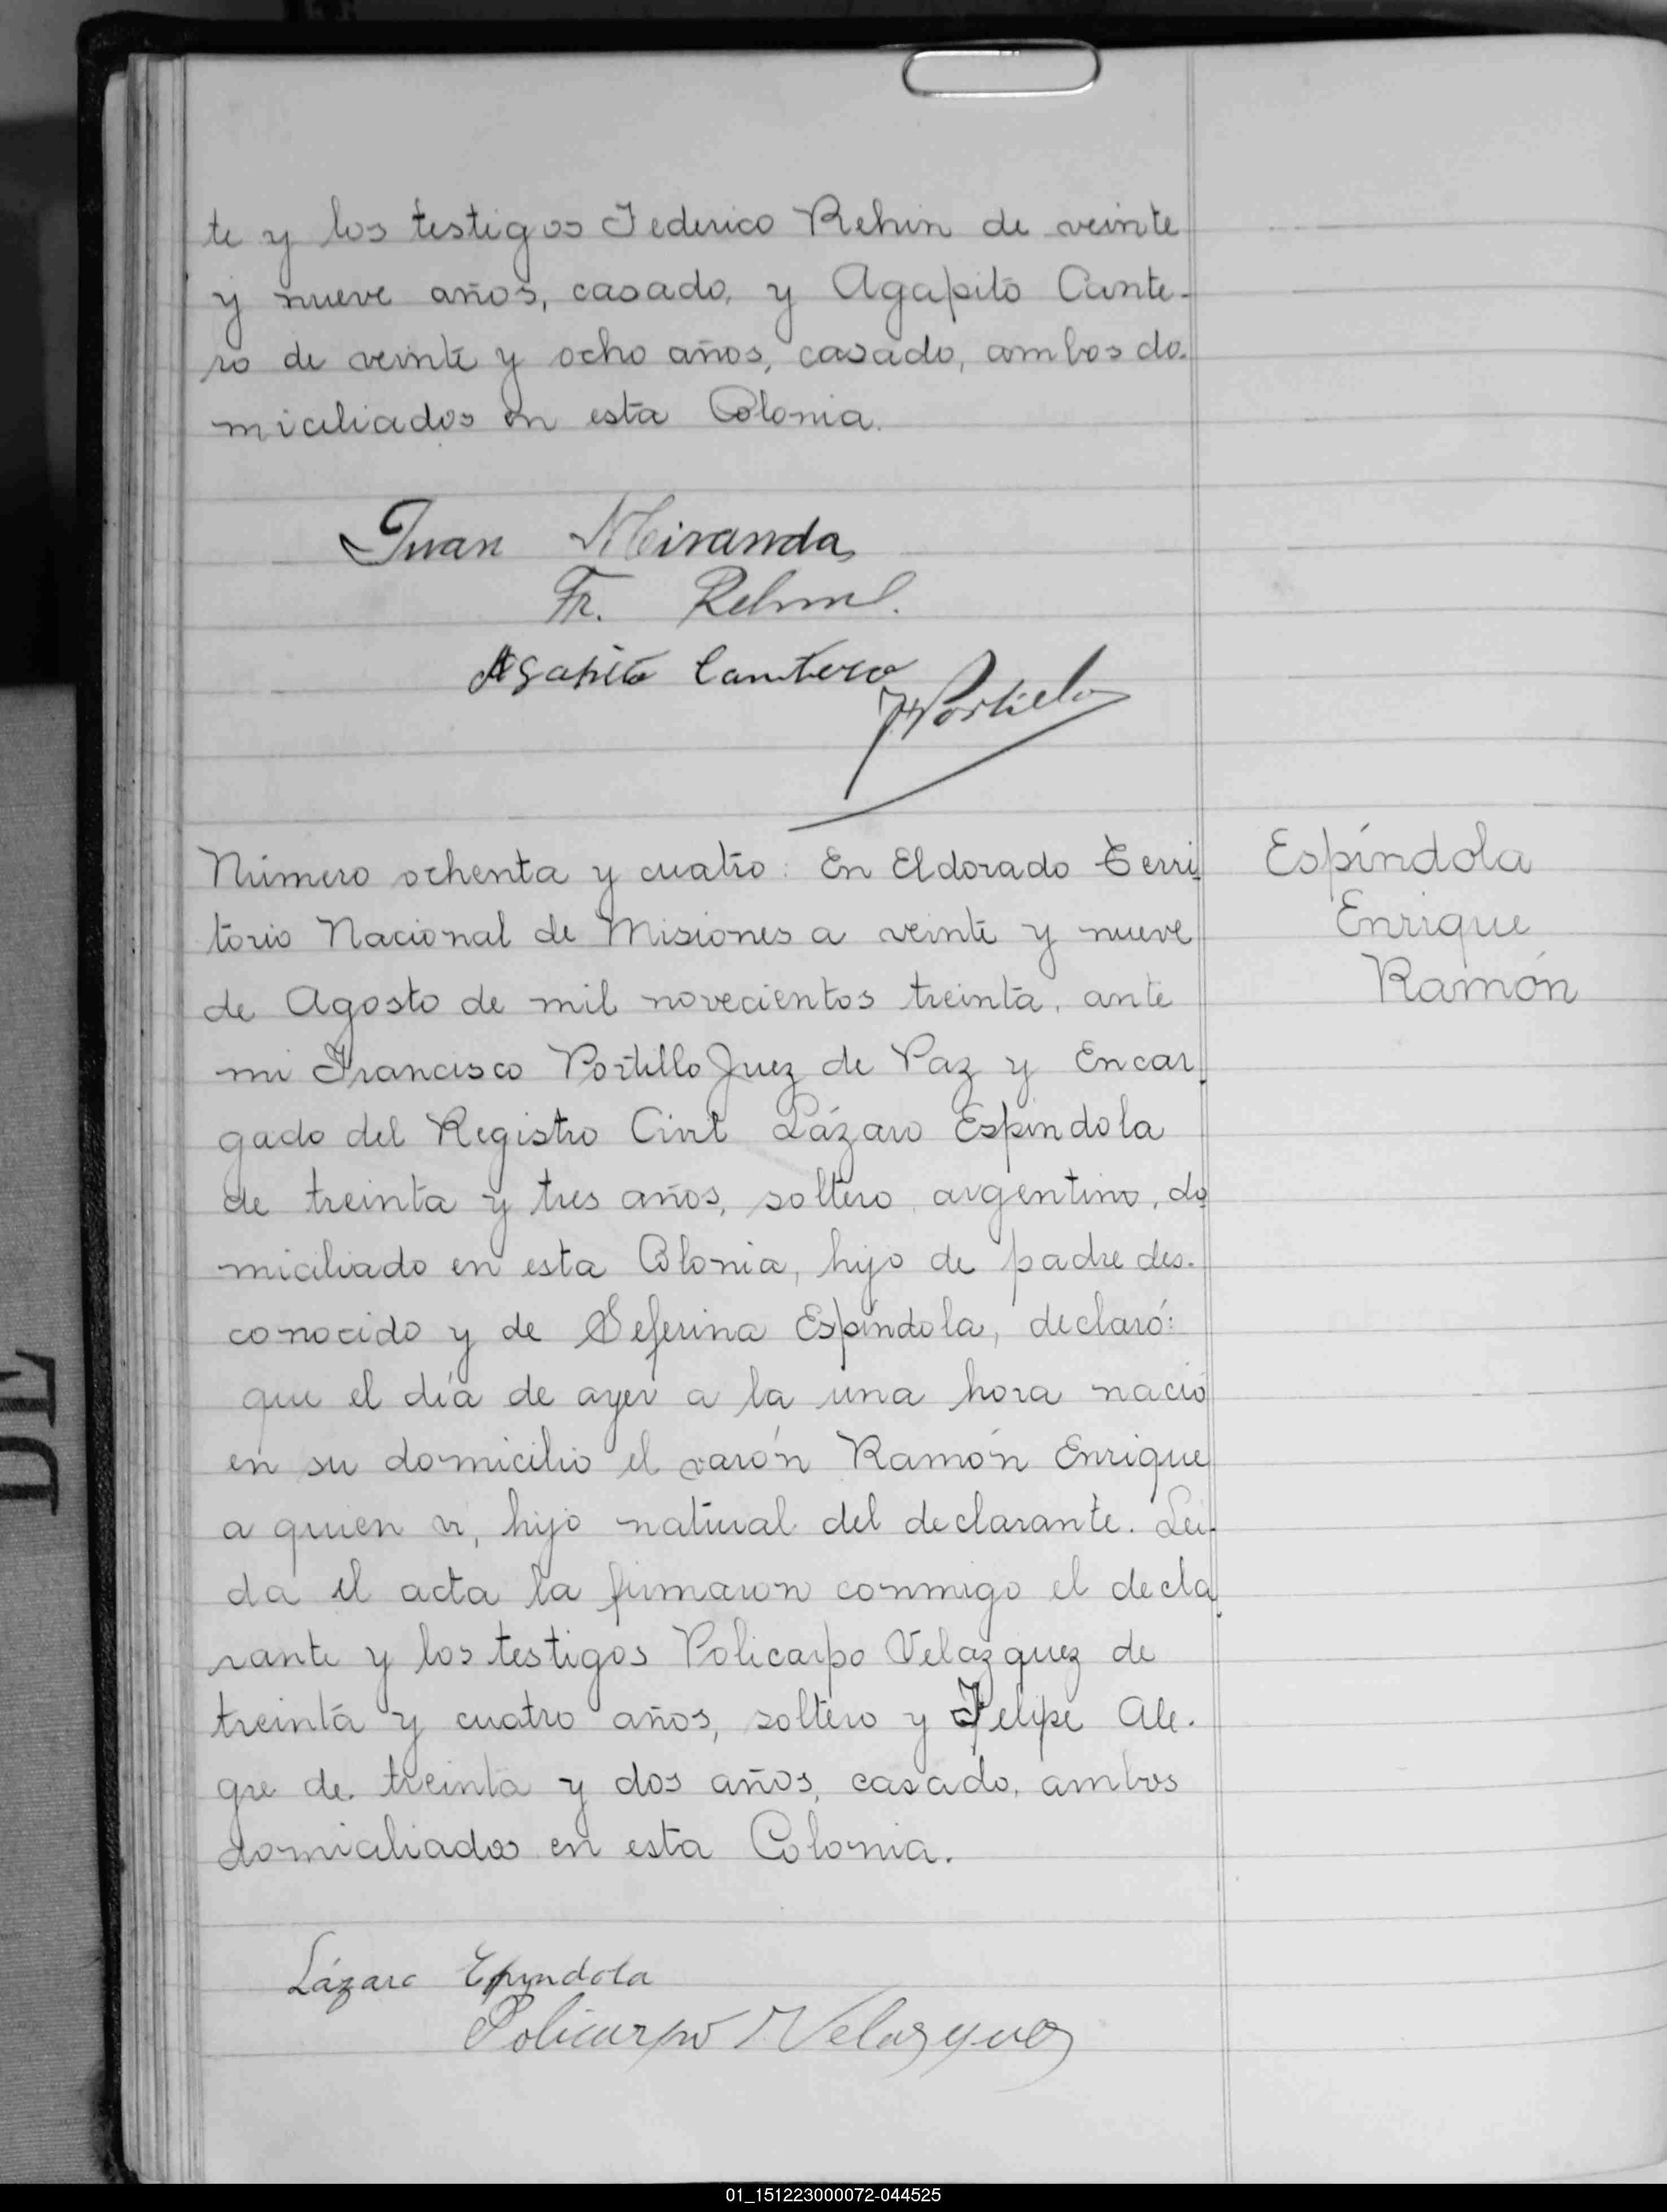 te y los testigos Federico Rehin de veinte
y nueve años, casado, y Agapito Cante-
ro de veinte y ocho años, casado, ambos do-
miciliados en esta Colonia.
Juan Miranda
Fr.
Agapito Cantero
Número ochenta y cuatro: En Eldorado Terri
torio Nacional de Misiones a veinte y nueve
de Agosto de mil novecientos treinta, ante
mi Francisco Portillo Juez de Paz y Encar-
gado del Registro Civil Lázaro Espíndola
de treinta y tres años, soltero, argentino, do
miciliado en esta Colonia, hijo de padre des-
conocido y de Seferina Espíndola, declaró:
que el día de ayer a la una hora nació
en su domicilio el varón Ramón Enrique
a quien vi, hijo natural del declarante. Lei-
da el acta la firmaron conmigo el decla-
rante y los testigos Policarpo Velazquez de
treinta y cuatro años, soltero y Felipe Ale-
gre de treinta y dos años, casado, ambos
domiciliados en esta Colonia.
Espíndola
Enrique
Ramón
Lázaro Epindola
Policarpo Velazquez
DE
01_151223000072-044525